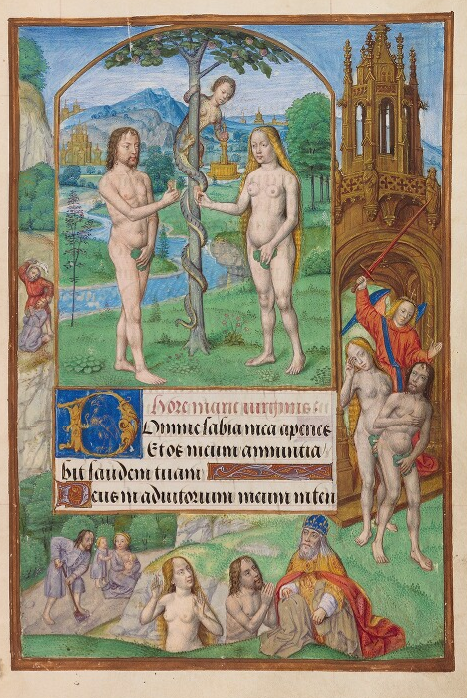 Hore marie virginis
Domine labia mea aperies
Et os meum annuntia
bit laudem tuam
Deus in adiutorium meum inten